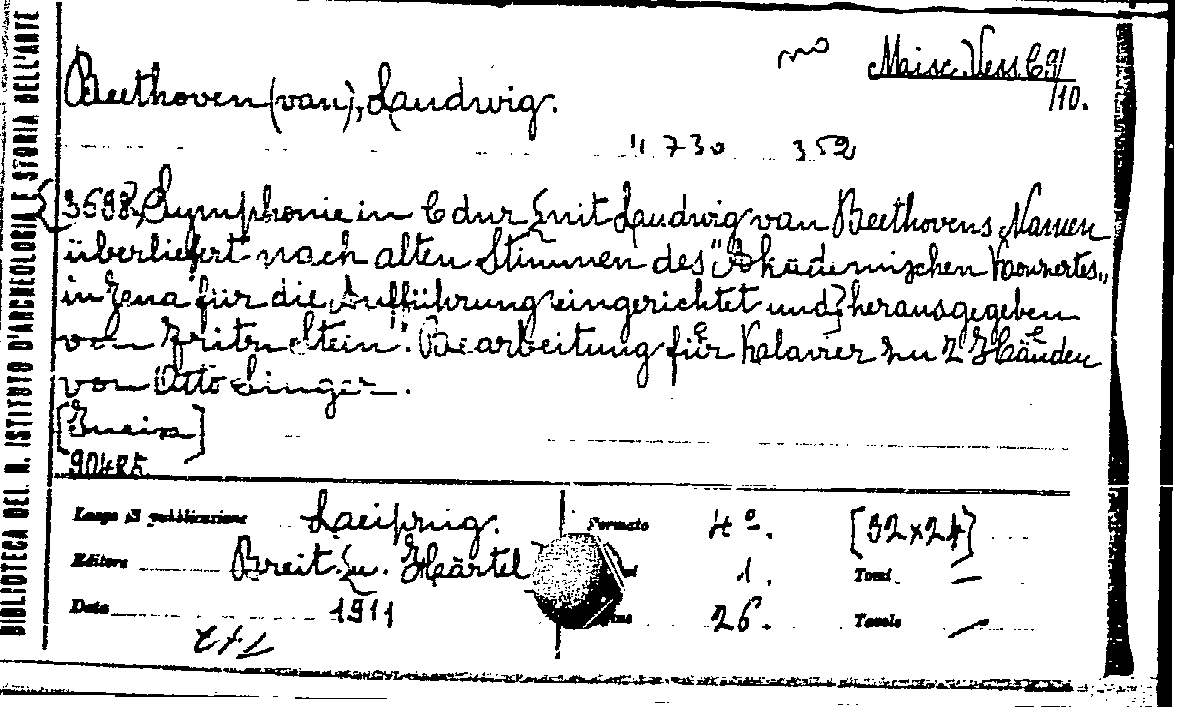 BIBLIOTECA DEL R. ISTITUTO D'ARCHEOLOGIA E STORIA DELL'ARTE
Maisc. Vess. C 9/
/10.
Beethoven (van), Laudwig.
" 730 352
3598. Symphonie in C dur mit Laudwig van Beethovens Namen
überliefert nach alten Stimmen des "Akademischen Konzertes"
in Jena für die Aufführung eingerichtet und] herausgegeben
von Fritz Stein". Bearbeitung für Klavier zu 2 Händen
von Otto Singer.
90485
Luogo di pubblicazione Laeipzig. Formato 4º. [32x24]
Editore Breit. u. Härtel 1. Tomi —
Data 1911 26. Tavole —